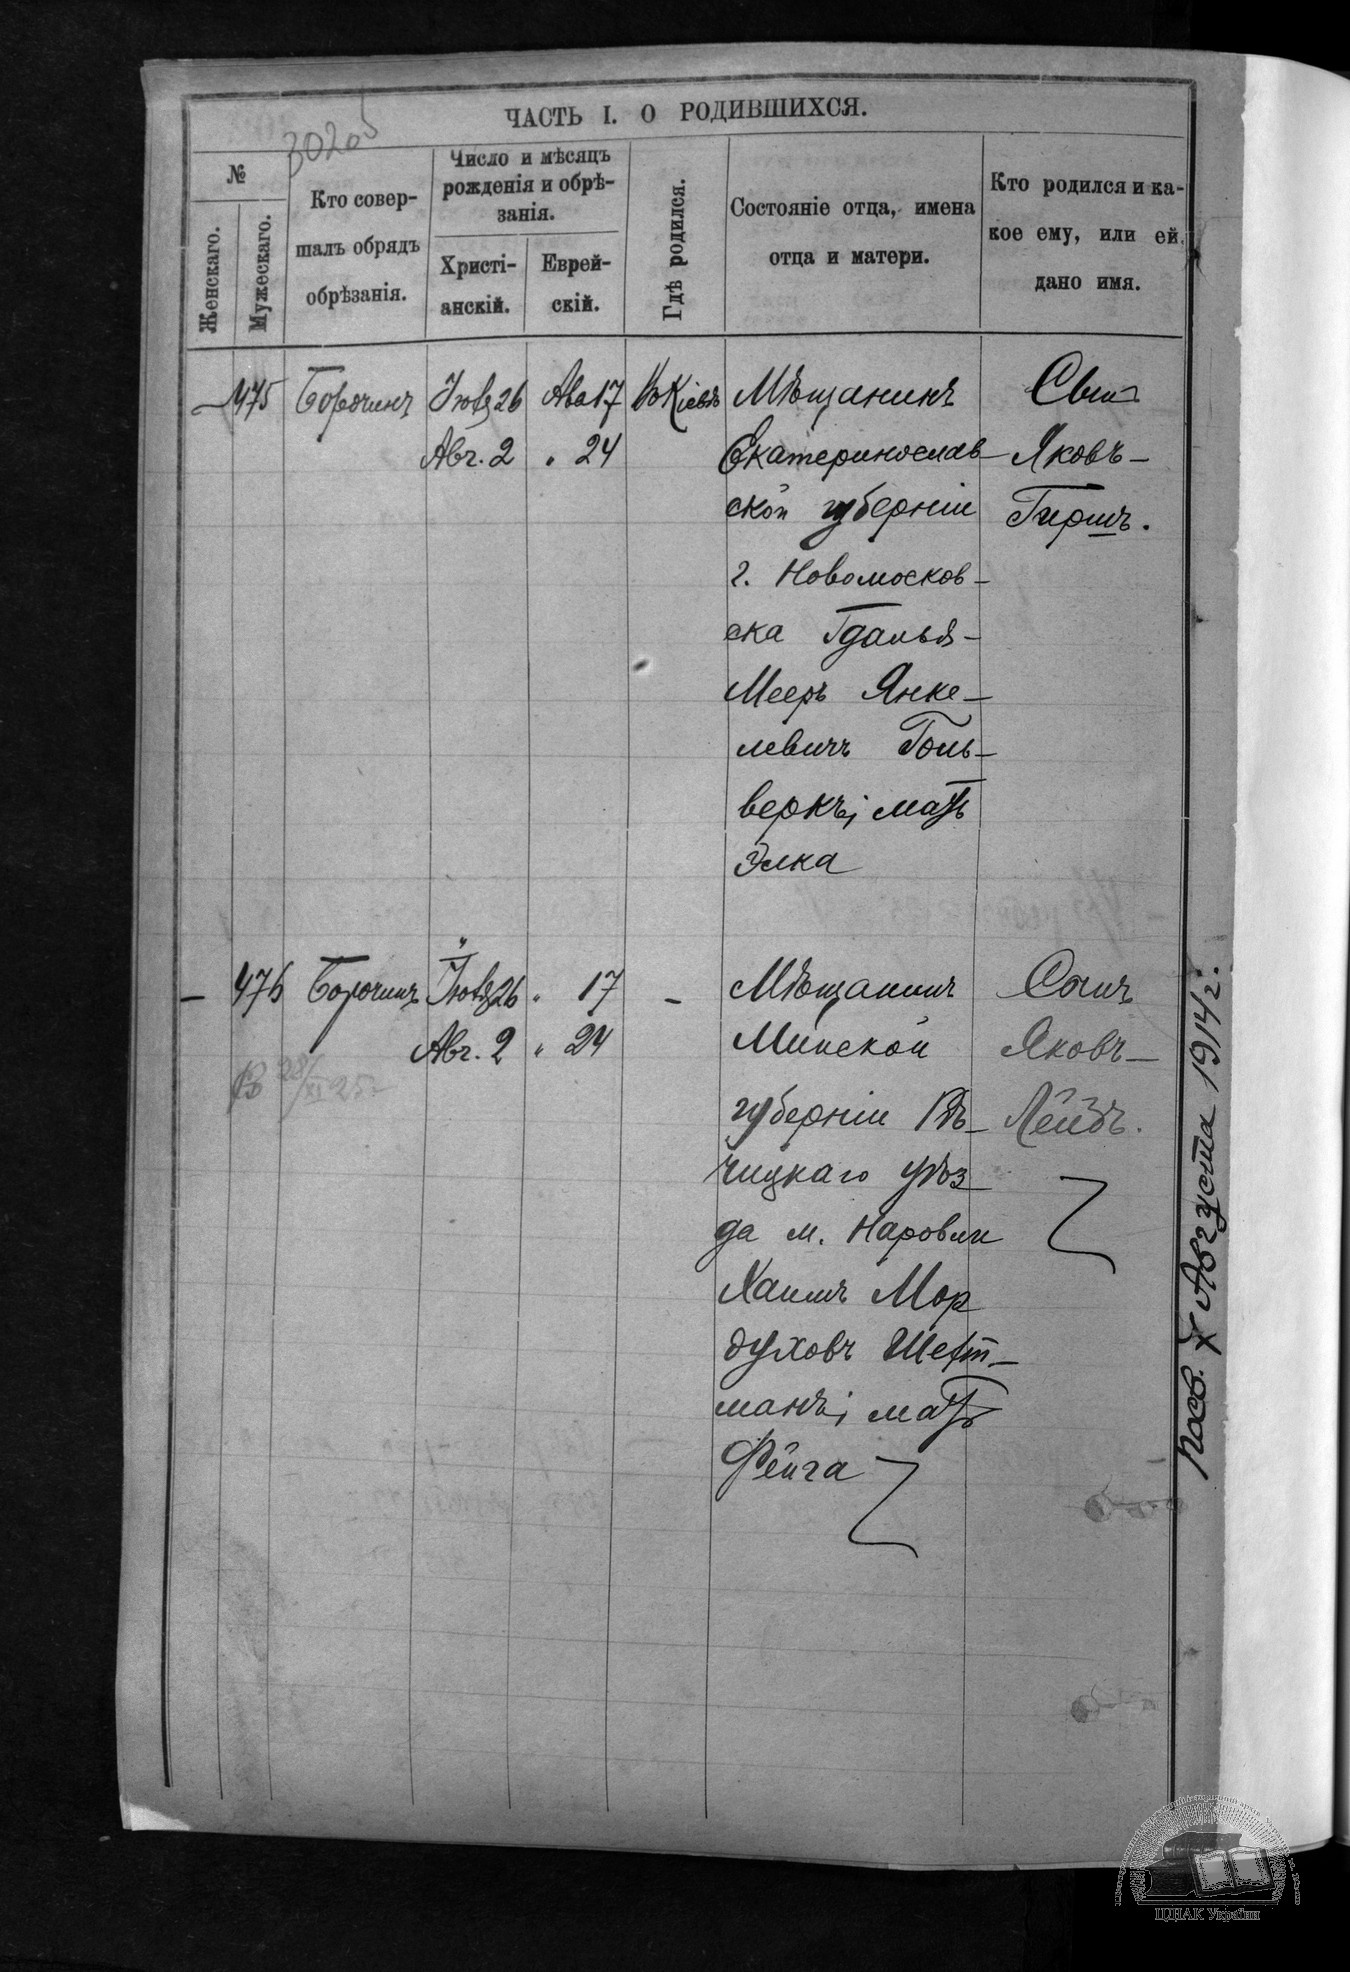 ЧАСТЬ I. О РОДИВШИХСЯ.
3020
№
Женскаго.
Мужескаго.
Кто совер-
шалъ обрядъ
обрѣзанія.
Число и мѣсяцъ
рожденія и обрѣ-
занія.
Христі-
анскій.
Еврей-
скій.
Гдѣ родился.
Состояніе отца, имена
отца и матери.
Кто родился и ка-
кое ему, или ей
дано имя.
475
Авг. 2
Ава 17
" 24
Въ Кіевѣ
Мѣщанинъ
Екатеринослав-
ской губерніи
г. Новомосков-
ска Гдалья-
Мееръ Янке-
левичъ Голь-
веркъ; мать
Элка
Сынъ
Яковъ-
Гиршъ.
476
Авг. 2
" 17
" 24
–
Мѣщанинъ
Минской
губерніи Рѣ-
чицкаго уѣз-
да м. Наровли
Хаимъ Мор
духовъ
манъ; мать
Фейга
Сынъ
Яковъ-
Лейбъ.
28/XI 25
Августа 1914 г.
ЦНАК України